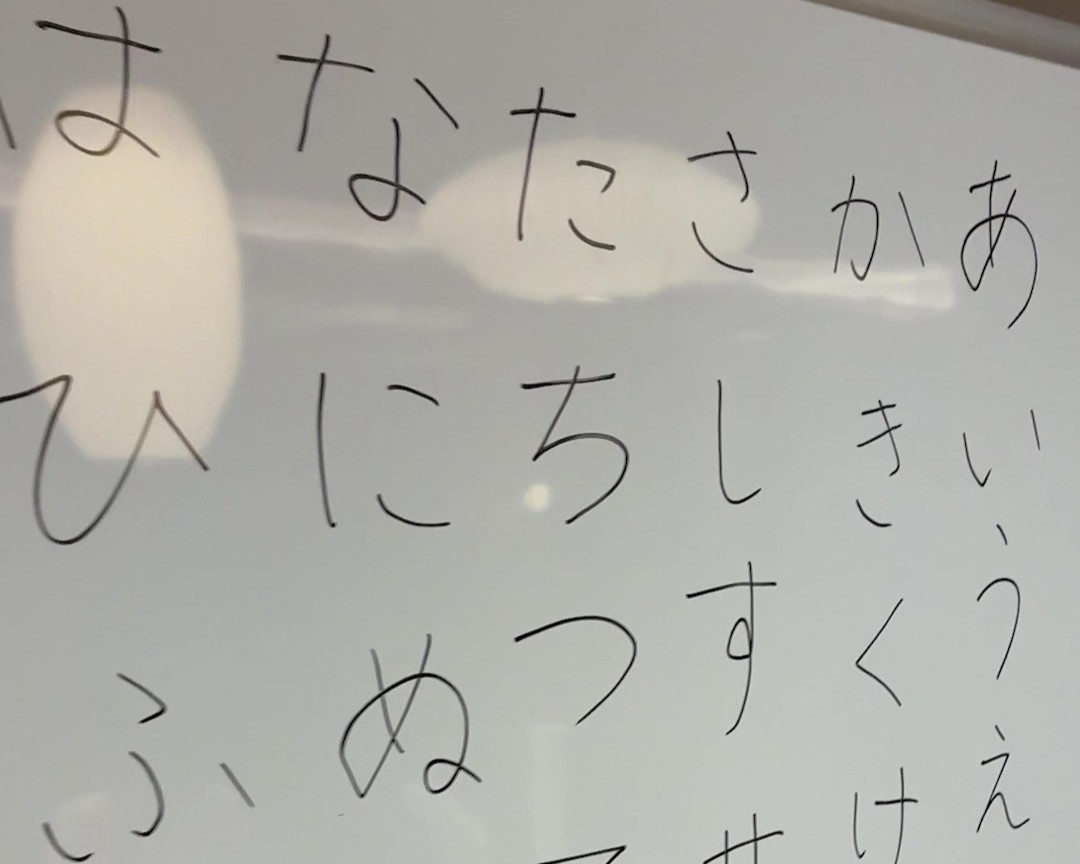 あいうえ
かきくけ
さしすせ
たちつて
なにぬ
はひふ